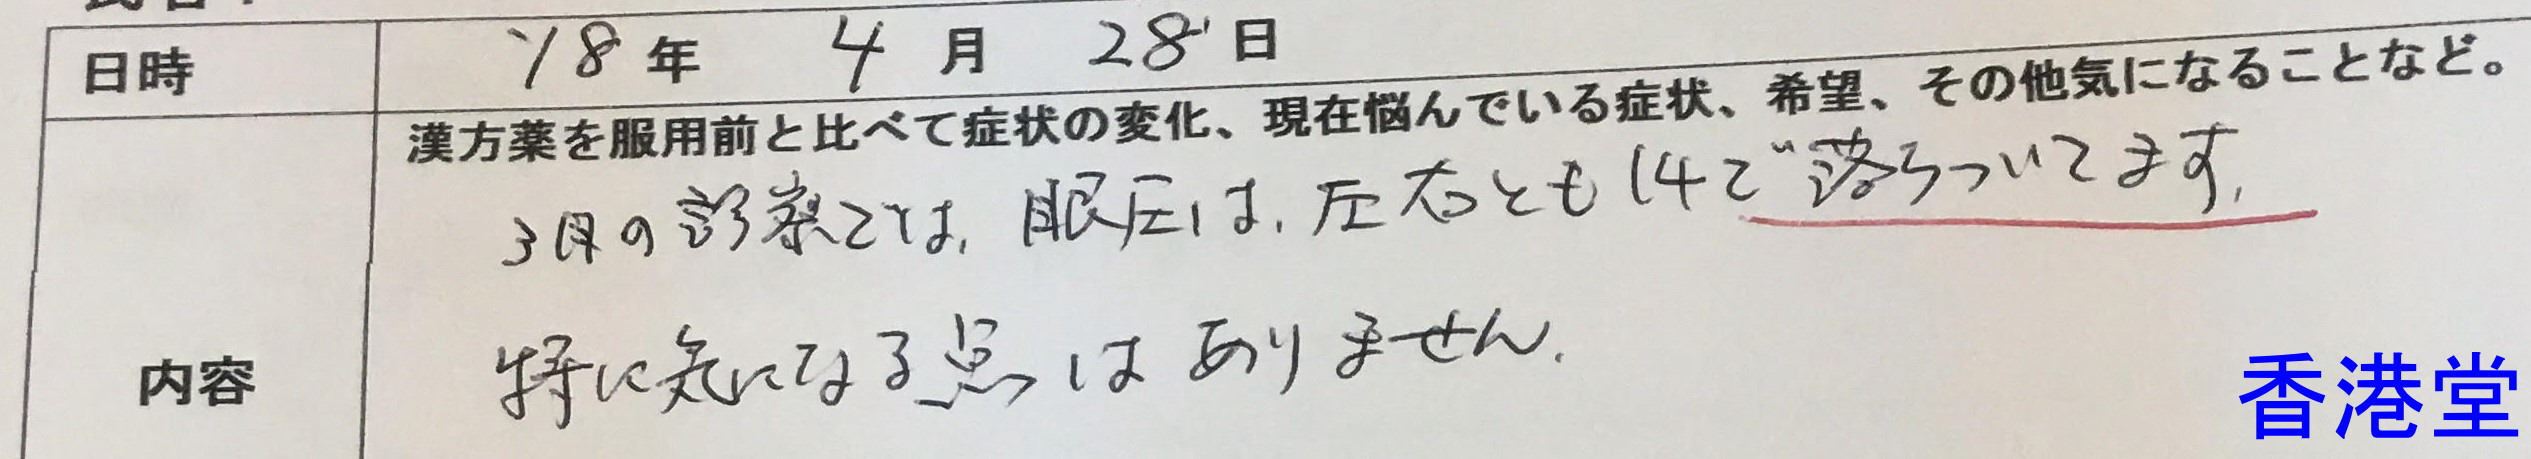 日時 '18年 4月 28日
漢方薬を服用前と比べて症状の変化、現在悩んでいる症状、希望、その他気になることなど。
3月の診察では、眼圧は、左右とも14で落ちついてます。
特に気になる点はありません。
内容
香港堂